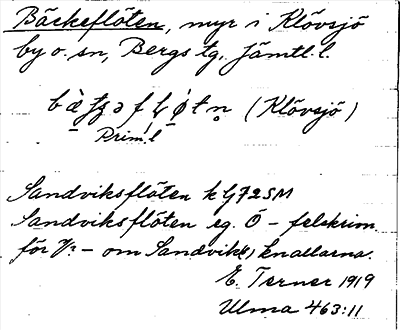 Bäckeflöten, myr i Klövsjö
by o. sn, Bergs tg. Jämtl. l.
(Klövsjö)
Prim. l
Sandviksflöten k G72SM
Sandviksflöten eg. Ö – felskrivn.
för – om Sandvik(s) knallarna.
E. Terner 1919
Ulma 463:11